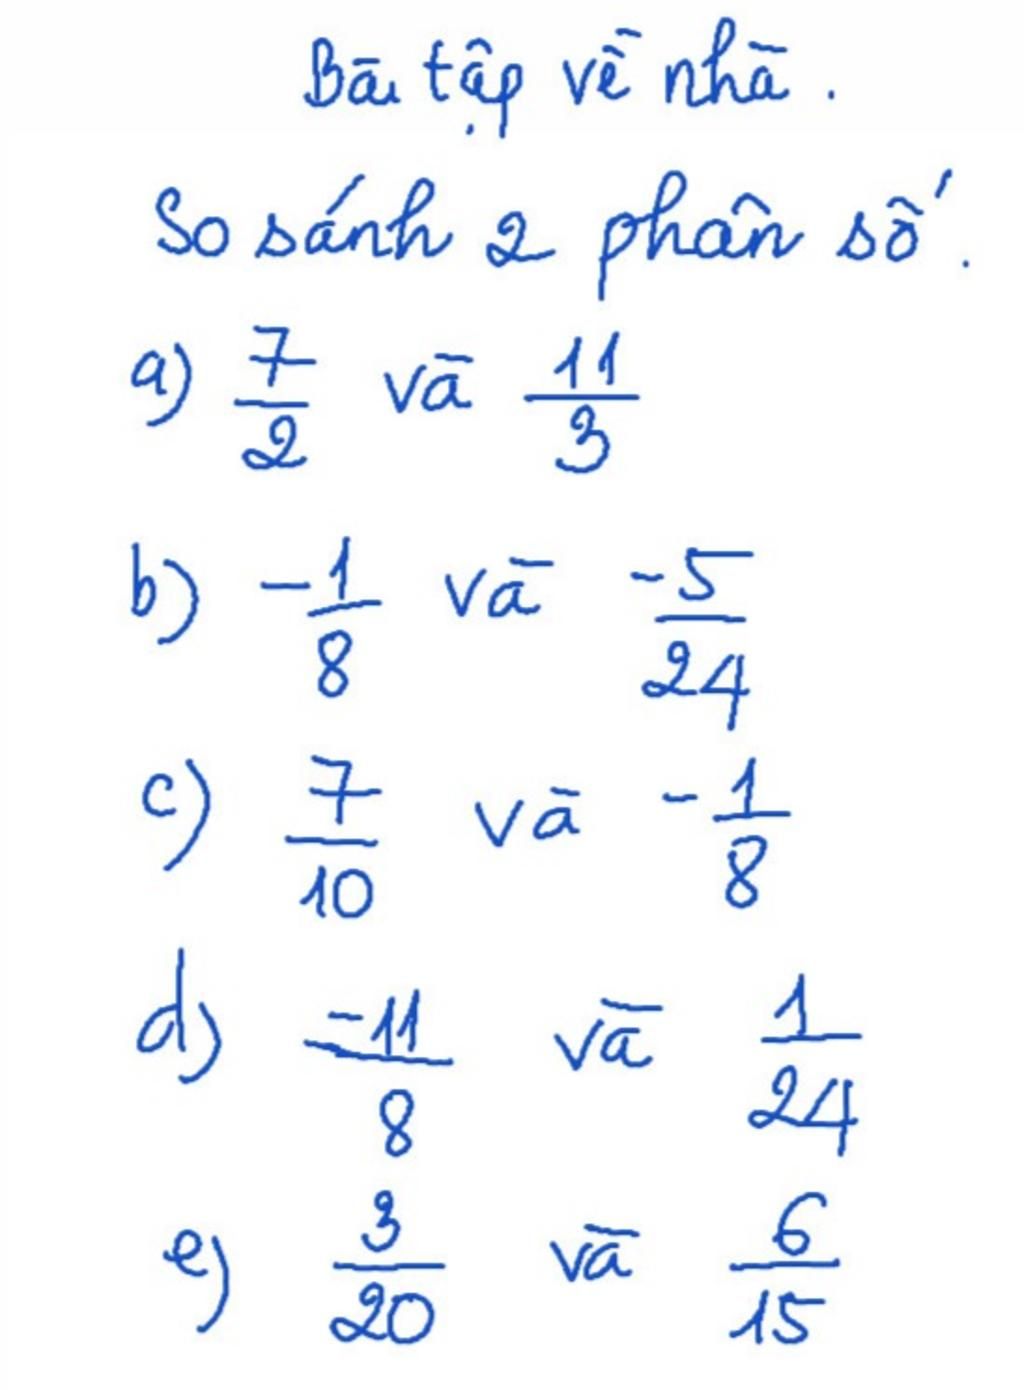 Bài tập về nhà.
So sánh 2 phân số.
a) 7/2 và 11/3
b) -1/8 và -5/24
c) 7/10 và -1/8
d) -11/8 và 1/24
e) 3/20 và 6/15